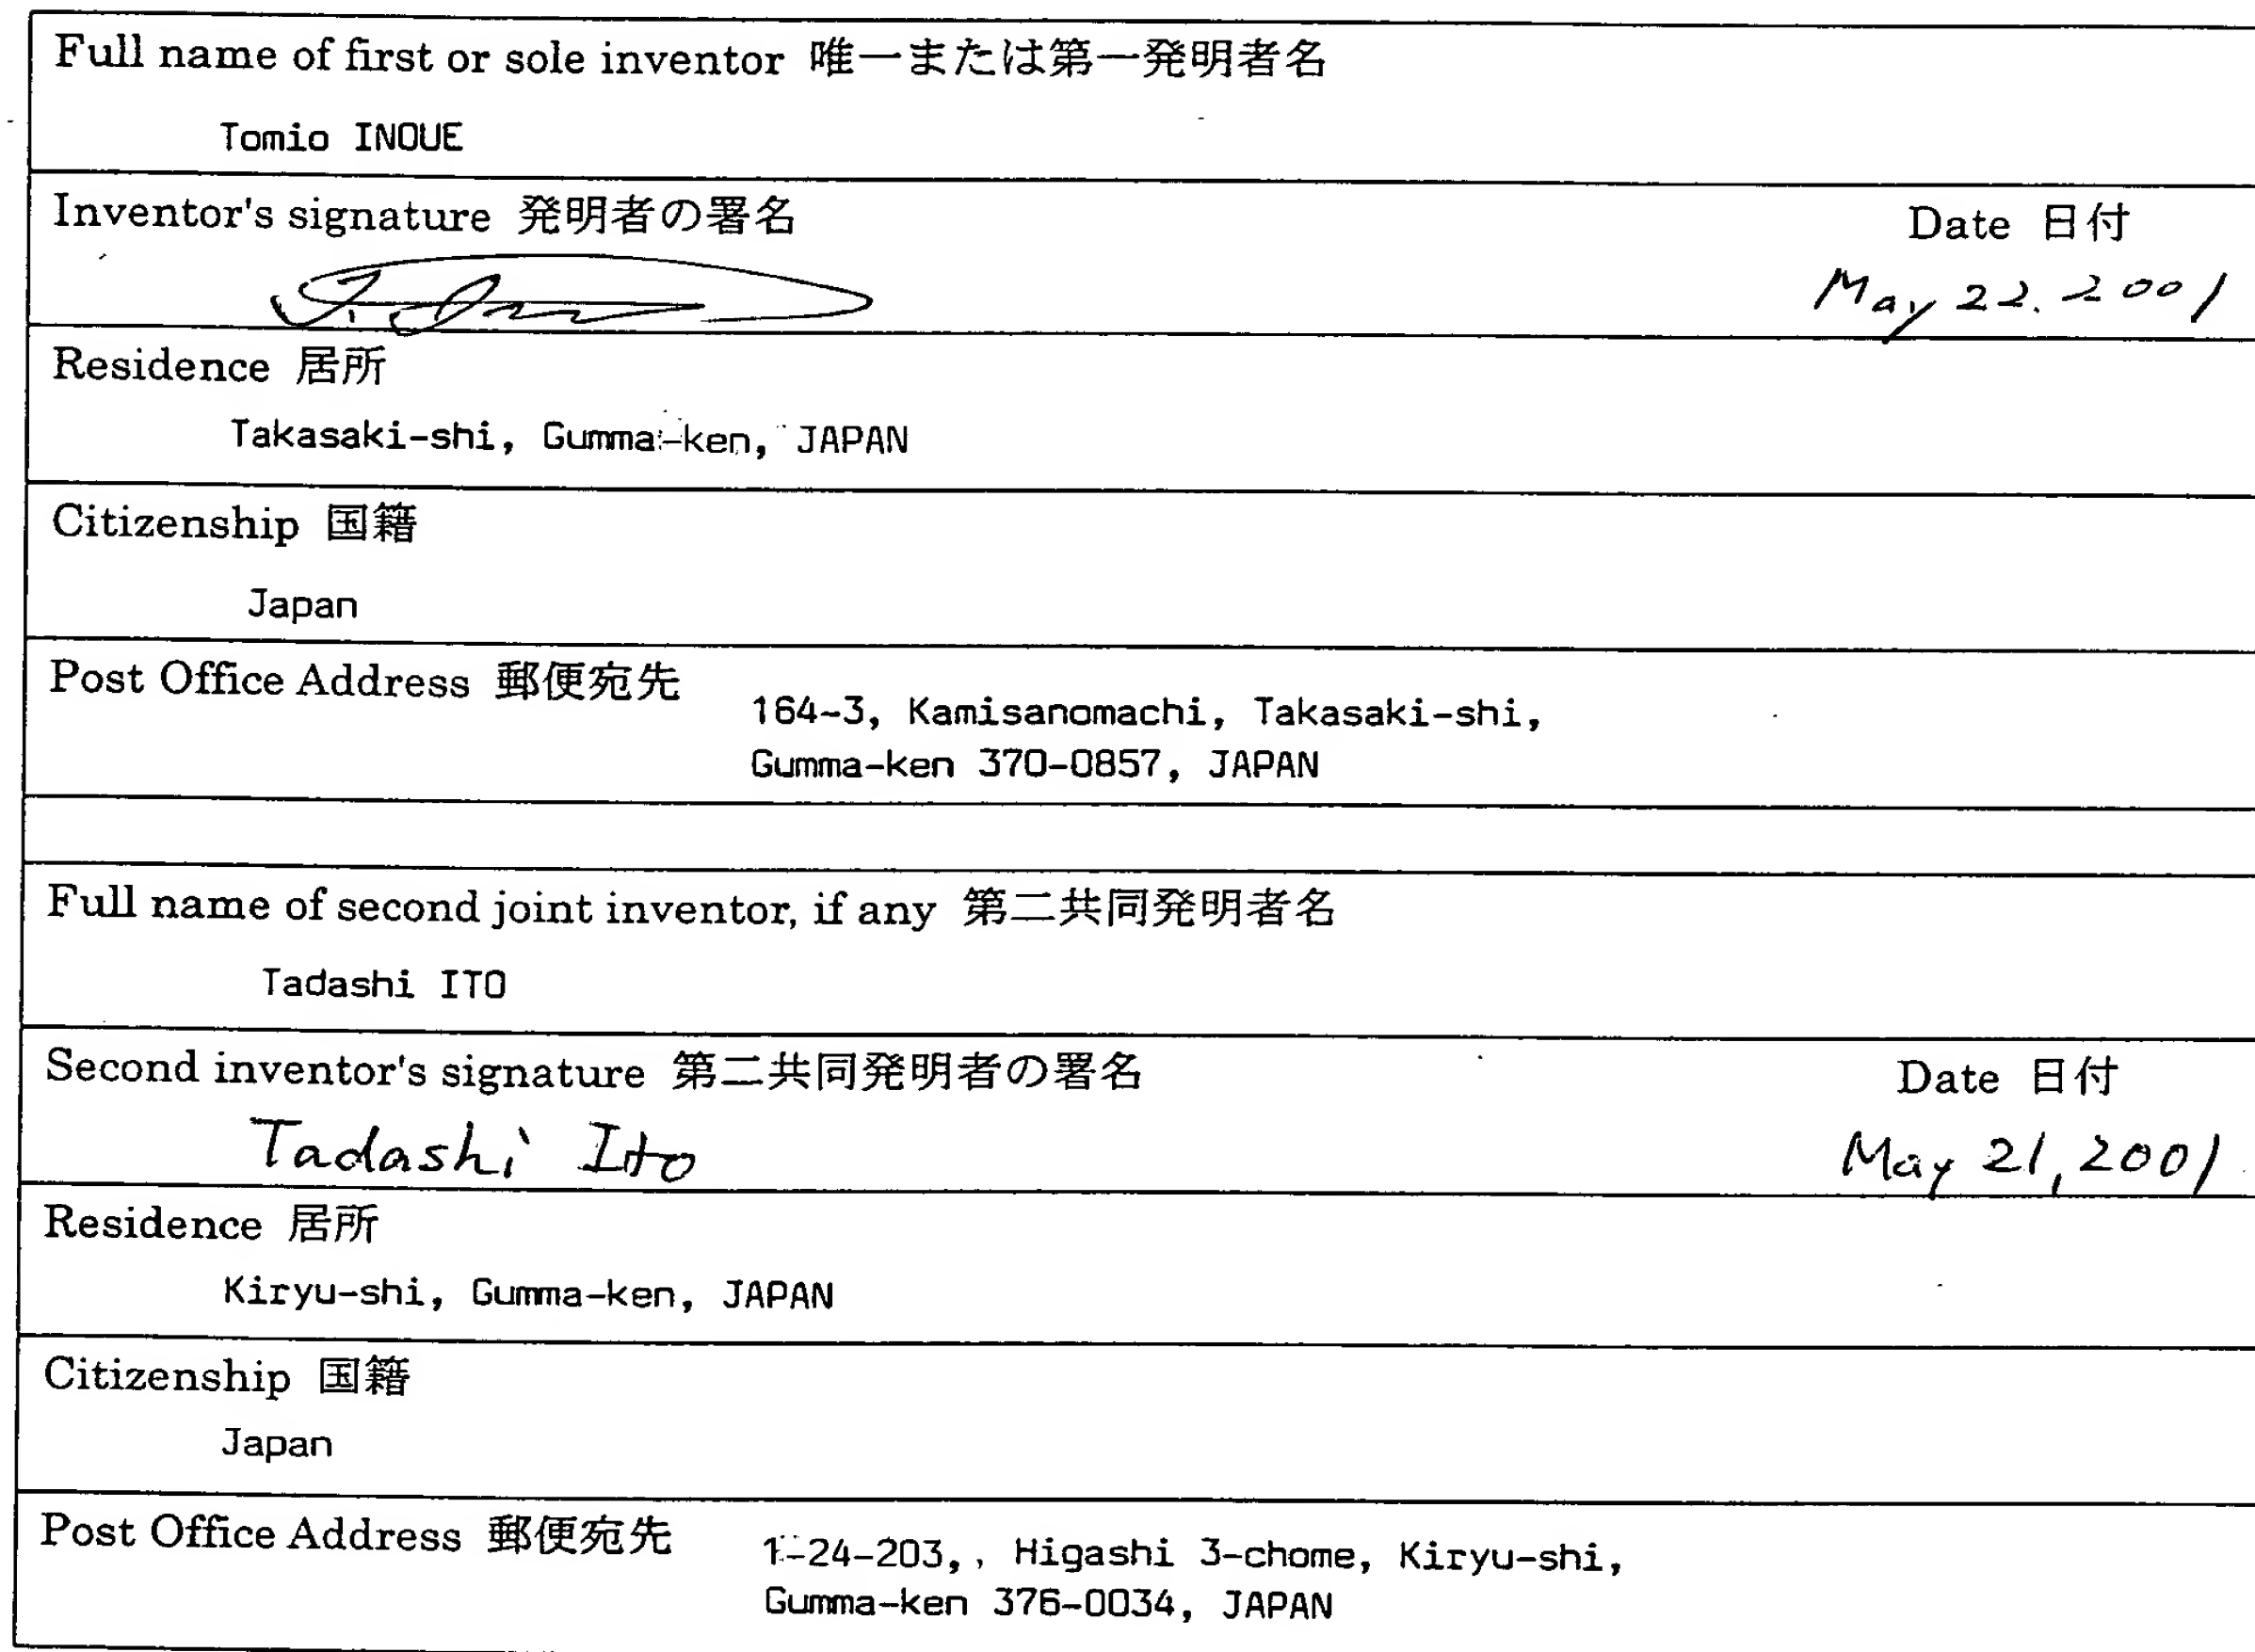 Full name of first or sole inventor 唯一または第一発明者名
Tomio INOUE
Inventor's signature 発明者の署名 Date 日付
May 22. 2001
Residence 居所
Takasaki-shi, Gumma-ken, JAPAN
Citizenship 国籍
Japan
Post Office Address 郵便宛先
164-3, Kamisanomachi, Takasaki-shi,
Gumma-ken 370-0857, JAPAN
Full name of second joint inventor, if any 第二共同発明者名
Tadashi ITO
Second inventor's signature 第二共同発明者の署名 Date 日付
Tadashi Ito May 21, 2001
Residence 居所
Kiryu-shi, Gumma-ken, JAPAN
Citizenship 国籍
Japan
Post Office Address 郵便宛先
1-24-203, Higashi 3-chome, Kiryu-shi,
Gumma-ken 376-0034, JAPAN